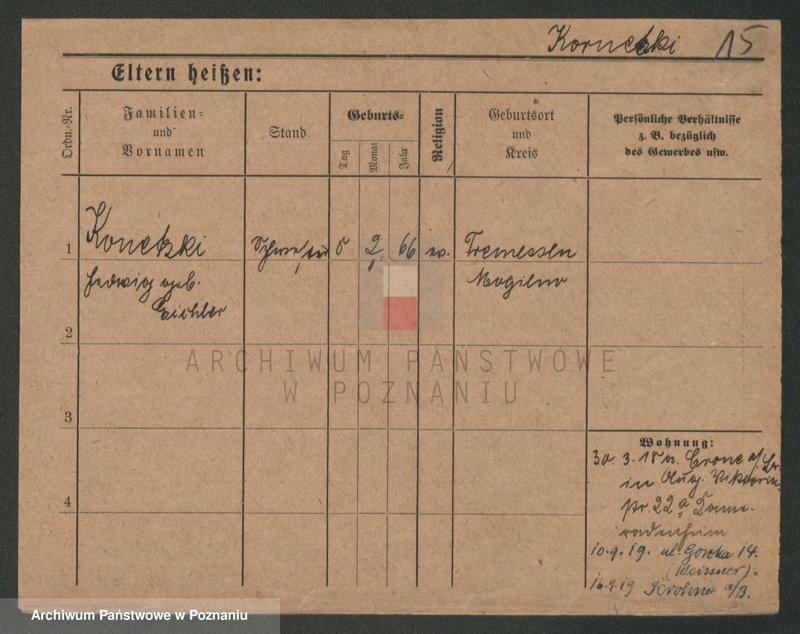 Kornetzki 15
Eltern heißen:
Ordn.-Nr.
Familien- und Vornamen
Stand
Geburts-
Tag
Monat
Jahr
Religion
Geburtsort und Kreis
Persönliche Verhältnisse
z. B. bezüglich
des Gewerbes usw.
1
Konetzki 8 2 66 ev. Tremessen
Hedwig geb. Mogilno
Eichler
2
ARCHIWUM PAŃSTWOWE
W POZNANIU
3
Wohnung:
30. 3. 18 v. Crone a/Br.
in Aug. Viktoria
4
str. 22a
10.9.19. ul. Gorska 14.
16.9.19
Archiwum Państwowe w Poznaniu